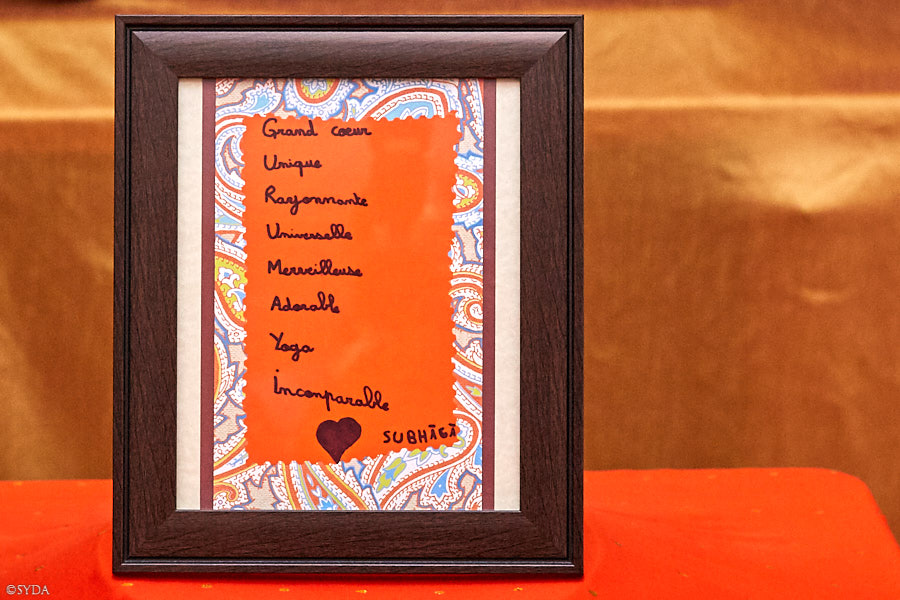 Grand cœur
Unique
Rayonnante
Universelle
Merveilleuse
Adorable
Yoga
Incomparable
SUBHĀGĀ
©SYDA